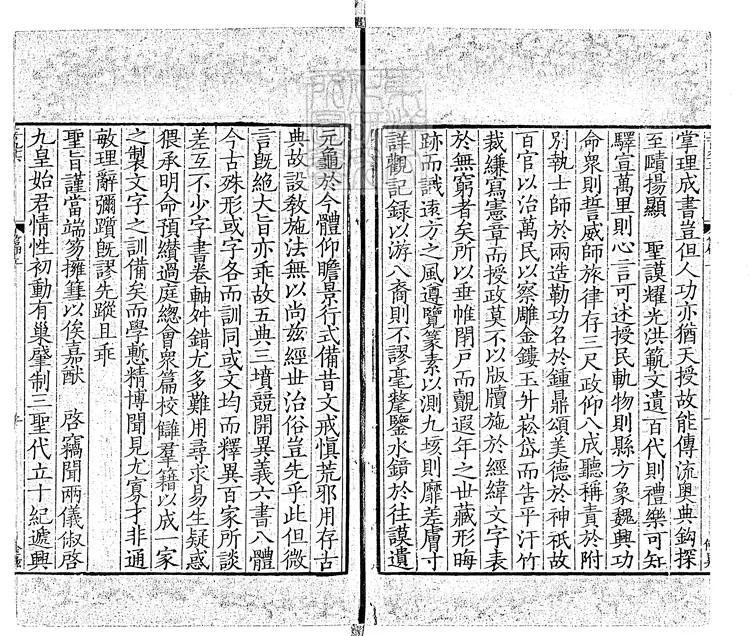 掌理成書豈但人功亦猶天授故能傳流奧典鈎探
至賾揚顯　聖謨耀光洪範文遺百代則禮樂可知
驛宣萬里則心言可述授民軌物則縣方象魏興功
命衆則誓威師旅律存三尺政仰八成聽稱責於附
別執士師於兩造勒功名於鍾鼎頌美德於神祇故
百官以治萬民以察雕金鏤玉升崧岱而告平汗竹
裁縑寫憲章而授政莫不以版牘施於經緯文字表
於無窮者矣所以垂帷閉戶而覿遐年之世藏形晦
跡而識遠方之風遵覽篆素以測九垓則靡差膚寸
詳觀記録以游八裔則不謬毫釐鑒水鏡於往謨遺
元龜於今體仰瞻景行式備昔文戒愼荒邪用存古
典故設敎施法無以尚兹經丗治俗豈先乎此但微
言旣絶大旨亦乖故五典三墳競開異義六書八體
今古殊形或字各而訓同或文均而釋異百家所談
差互不少字書卷軸舛錯尤多難用尋求易生疑惑
猥承明命預纘過庭總會衆篇校讎羣籍以成一家
之製文字之訓備矣而學慙精博聞見尤寡才非通
敏理辭彌躓旣謬先蹤且乖
聖旨謹當端笏擁篲以俟嘉猷　啓竊聞兩儀俶啓
九皇始君情性初動有巢肇制三聖代立十紀遞興